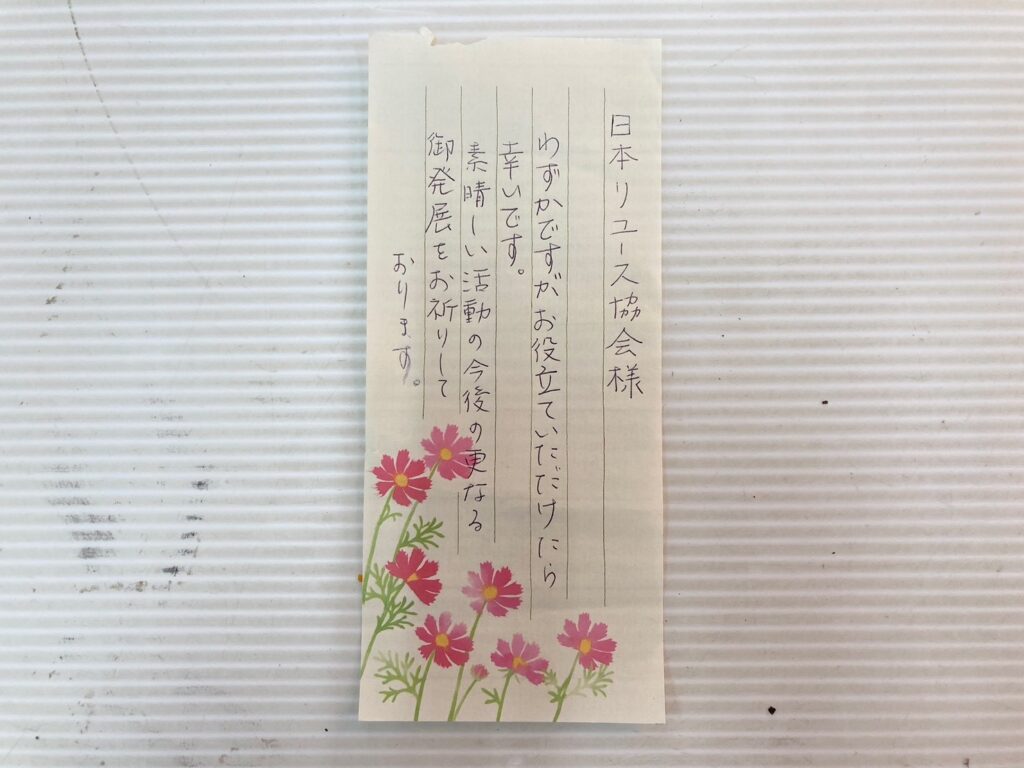 日本リユース協会様
わずかですがお役立ていただけたら
幸いです。
素晴しい活動の今後の更なる
御発展をお祈りして
おります。